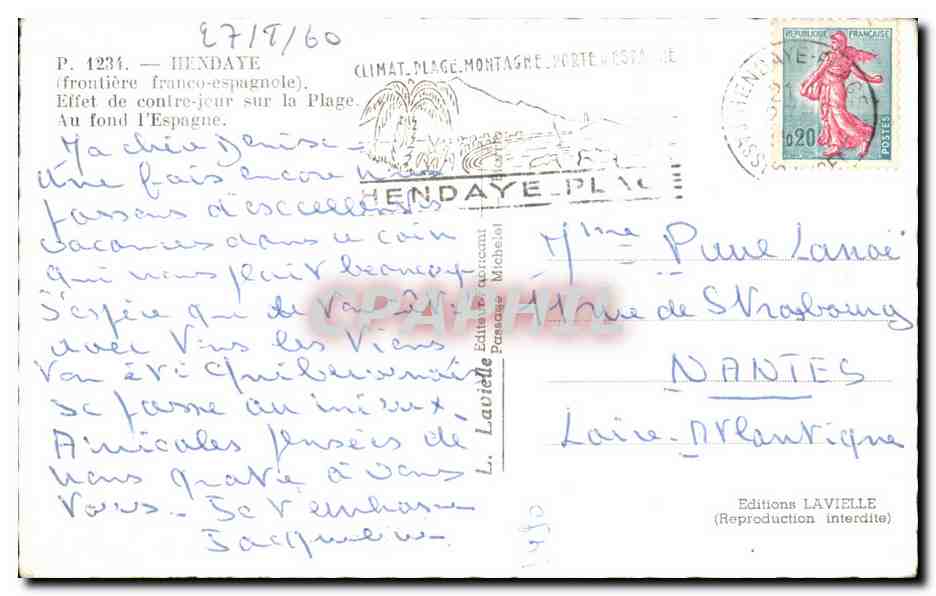 27/8/60
P. 1234. — HENDAYE
(frontière franco-espagnole).
Effet de contre-jour sur la Plage.
Au fond l'Espagne.
CLIMAT_PLAGE_MONTAGNE_PORTE D'ESPAGNE
HENDAYE_PLAGE
REPUBLIQUE FRANÇAISE
0,20
POSTES
HENDAYE
Ma chère Denise -
Une fois encore nous
passons d'excellentes
vacances dans ce coin
qui nous plait beaucoup
J'espère que de ton côté
avec tous les tiens
ton été Quiberonnais
se passe au mieux.
Amicales pensées de
nous quatre à vous
tous - Je t'embrasse
Jacqueline -
L. Lavielle Editeur-Fabricant
Passage Michelet
CPAPHIL
Mme Lanoë
11 rue de Strasbourg
NANTES
Loire-Atlantique
Editions LAVIELLE
(Reproduction interdite)